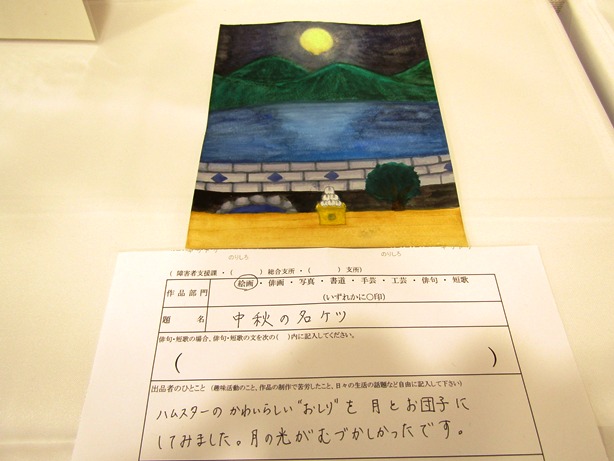 のりしろ のりしろ
( 障害者支援課 ・ ( ) 総合支所 ・ ( ) 支所)
作品部門 絵画 ・ 俳画 ・ 写真 ・ 書道 ・ 手芸 ・ 工芸 ・ 俳句 ・ 短歌
(いずれかに○印)
題 名 中秋の名ケツ
俳句・短歌の場合、俳句・短歌の文を次の( )内に記入してください。
( )
出品者のひとこと (趣味活動のこと、作品の制作で苦労したこと、日々の生活の話題など自由に記入して下さい)
ハムスターの かわいらしい"おしり"を 月とお団子に
してみました。月の光がむづかしかったです。